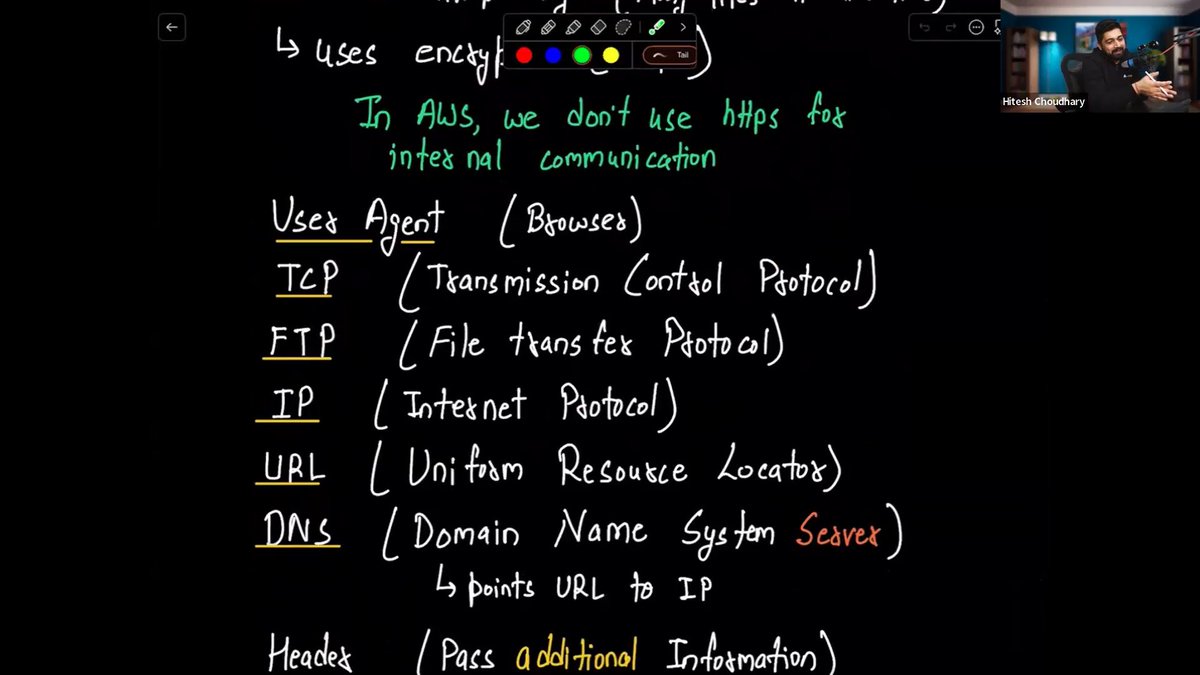 ↳ uses
Tail
Hitesh Choudhary
In AWS, we don't use https for
internal communication
User Agent (Browser)
TCP (Transmission Control Protocol)
FTP (File transfer Protocol)
IP (Internet Protocol)
URL (Uniform Resource Locator)
DNS (Domain Name System Server)
↳ points URL to IP
Header (Pass additional Information)